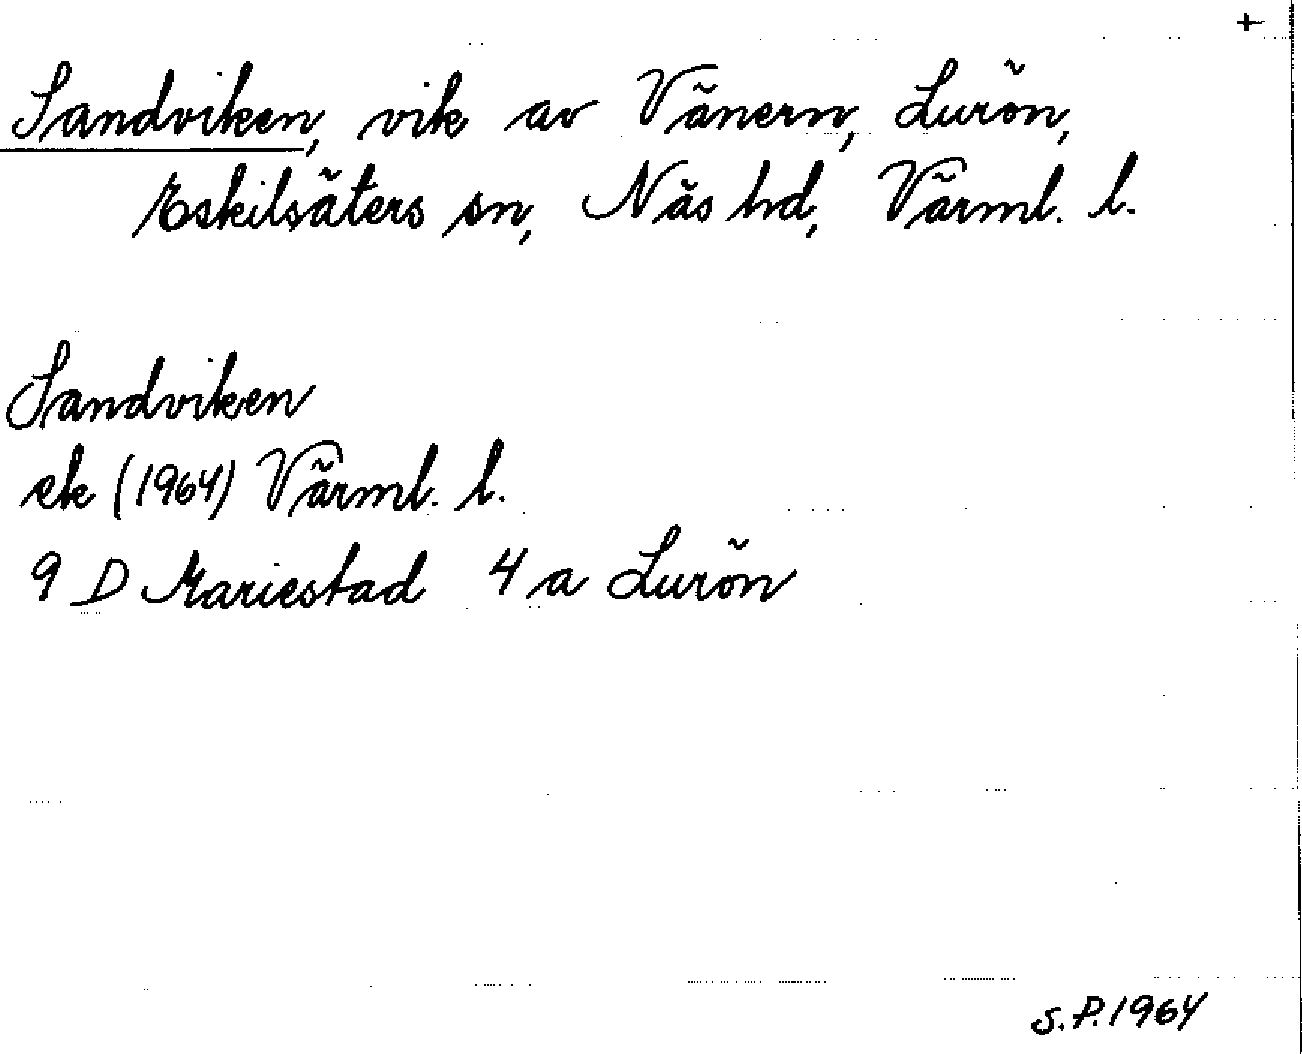 +
Sandviken, vik av Vänern, Lurön,
Eskilsäters sn, Näs hd, Värml. l.
Sandviken
ek (1964) Värml. l.
9 D Mariestad 4 a Lurön
S.P. 1964